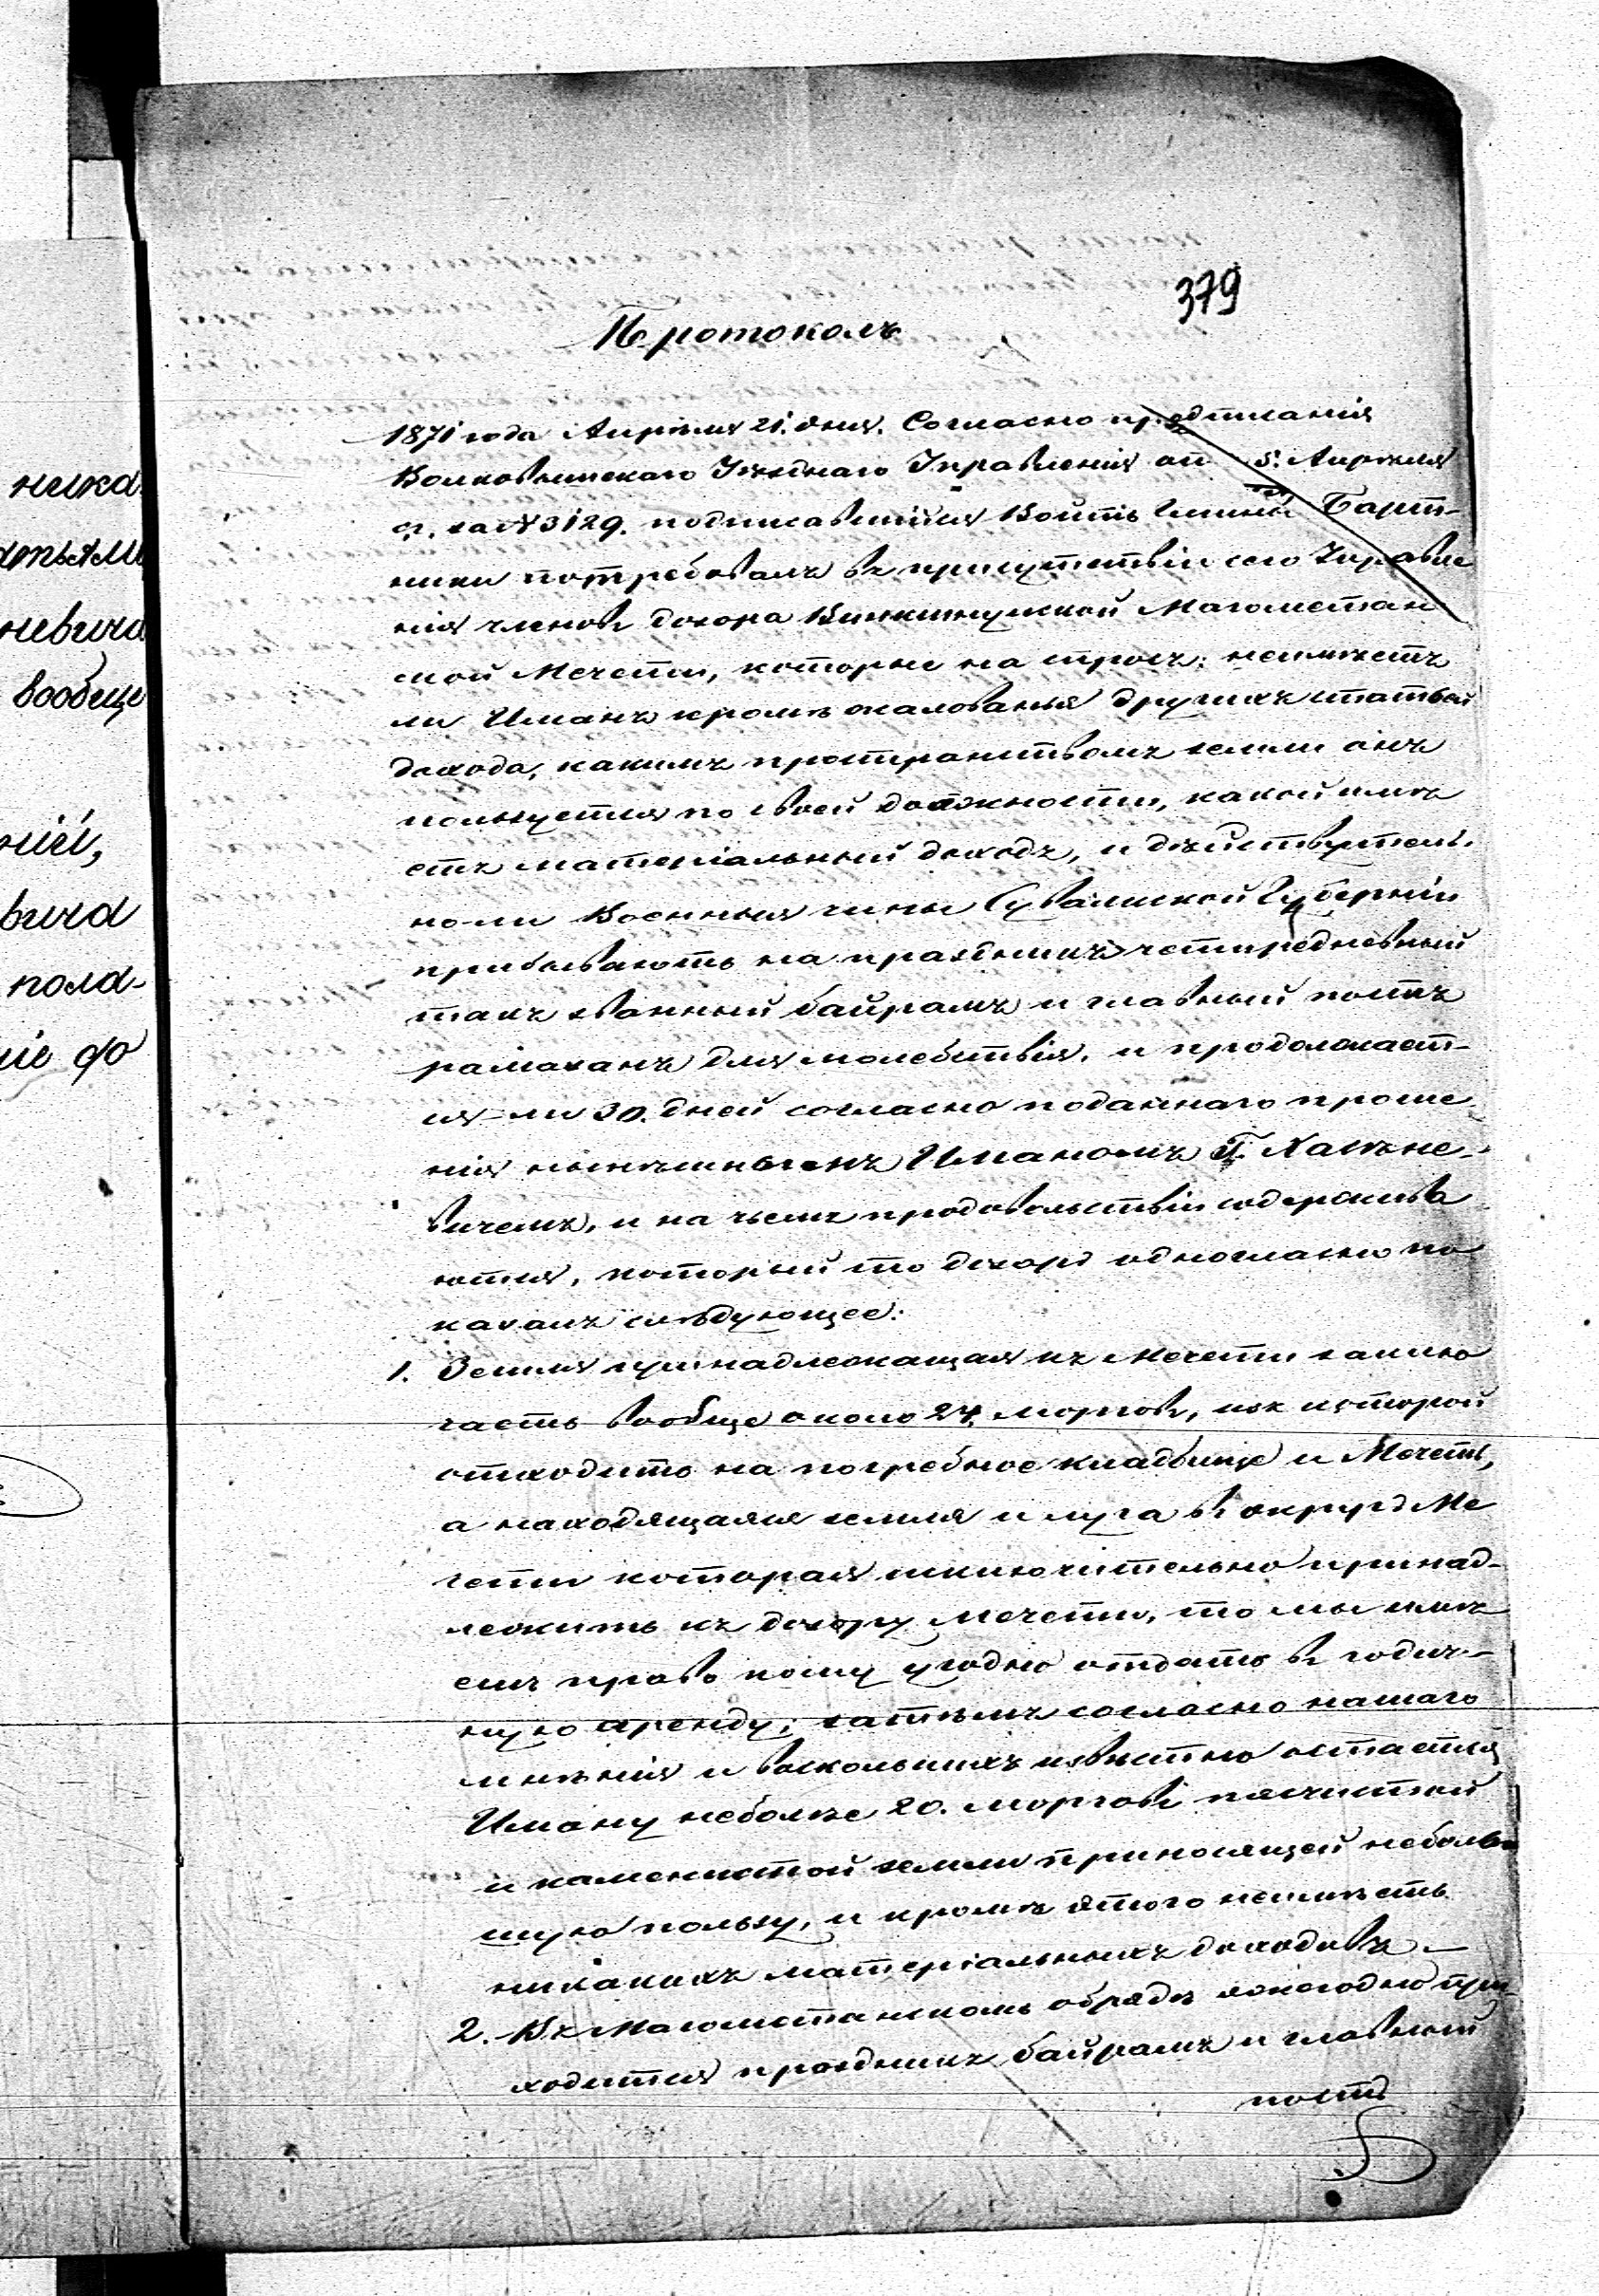 379
Протоколъ
1871 года Апрѣля 21. дня. Согласно предписанія
Волковышскаго Уѣзднаго Управленія отъ 5. Апрѣля
с. г. за N 3129. подписавшійся Войтъ Гмины Барт-
ники потребовалъ въ присутствіи сего Управле
нія членовъ дозора Винкшнупской Магометан
ской Мечети, которые на спросъ: неимѣетъ
ли Иманъ кромѣ жалованья другихъ статьей
дохода, какимъ пространствомъ земли онъ
пользуется по своей должности, какой имѣ
етъ матеріальный доходъ, и дѣйствутель-
но-ли Военныя чины Сувалкской Губерніи
прибываютъ на праздникъ четыредневный
такъ званный байрамъ и главный постъ
рамазанъ для молебствія, и продолжает-
ся-ли 30. дней согласно поданнаго проше
нія нынѣшнымъ Иманомъ Г. Халѣне-
вичемъ, и на чьемъ продовольствіи содержива
ются, который то дозоръ одногласно по
казалъ слѣдующее:
1. Земля принадлежащая къ Мечети заклю
часть вообще около 24. моргов, изъ которой
отходитъ на погребное кладбище и Мечеть,
а находящаяся земля и луга въ округѣ Ме
чети которая исключительно принад-
лежитъ къ дозору Мечети, то мы имѣ
емъ право кому угодно отдать въ годич-
ную аренду; затѣмъ согласно нашаго
мнѣнія и васколькихъ извѣстно остается
Иману неболѣе 20. моргов песчистой
и каменистой земли приносящей неболь
шую пользу, и кромѣ этого неимѣетъ
никакихъ матеріальныхъ доходовъ.—
2. Въ Магометанскомъ обрядѣ ежегодно при-
ходится праздникъ байрамъ и главный
постъ
ника
невича
вообще
ній,
вича
пола-
ніе до